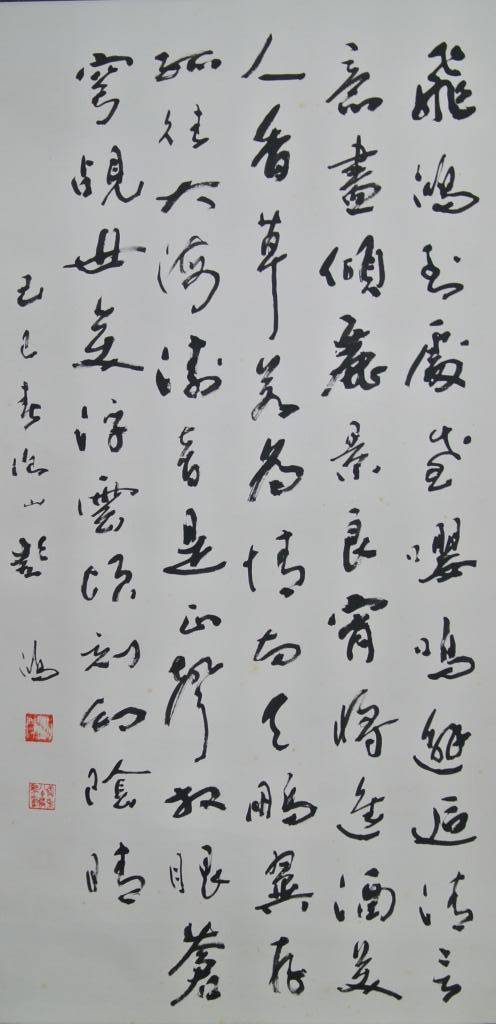 飛鴻到處感嚶鳴邂逅清言
意盡傾麗景良宵將進酒美
人香草若為情南天鵬翼存
孤往大海濤音是正聲放眼蒼
穹覘世變浮雲頃刻幻陰晴
己巳春 山 鴻